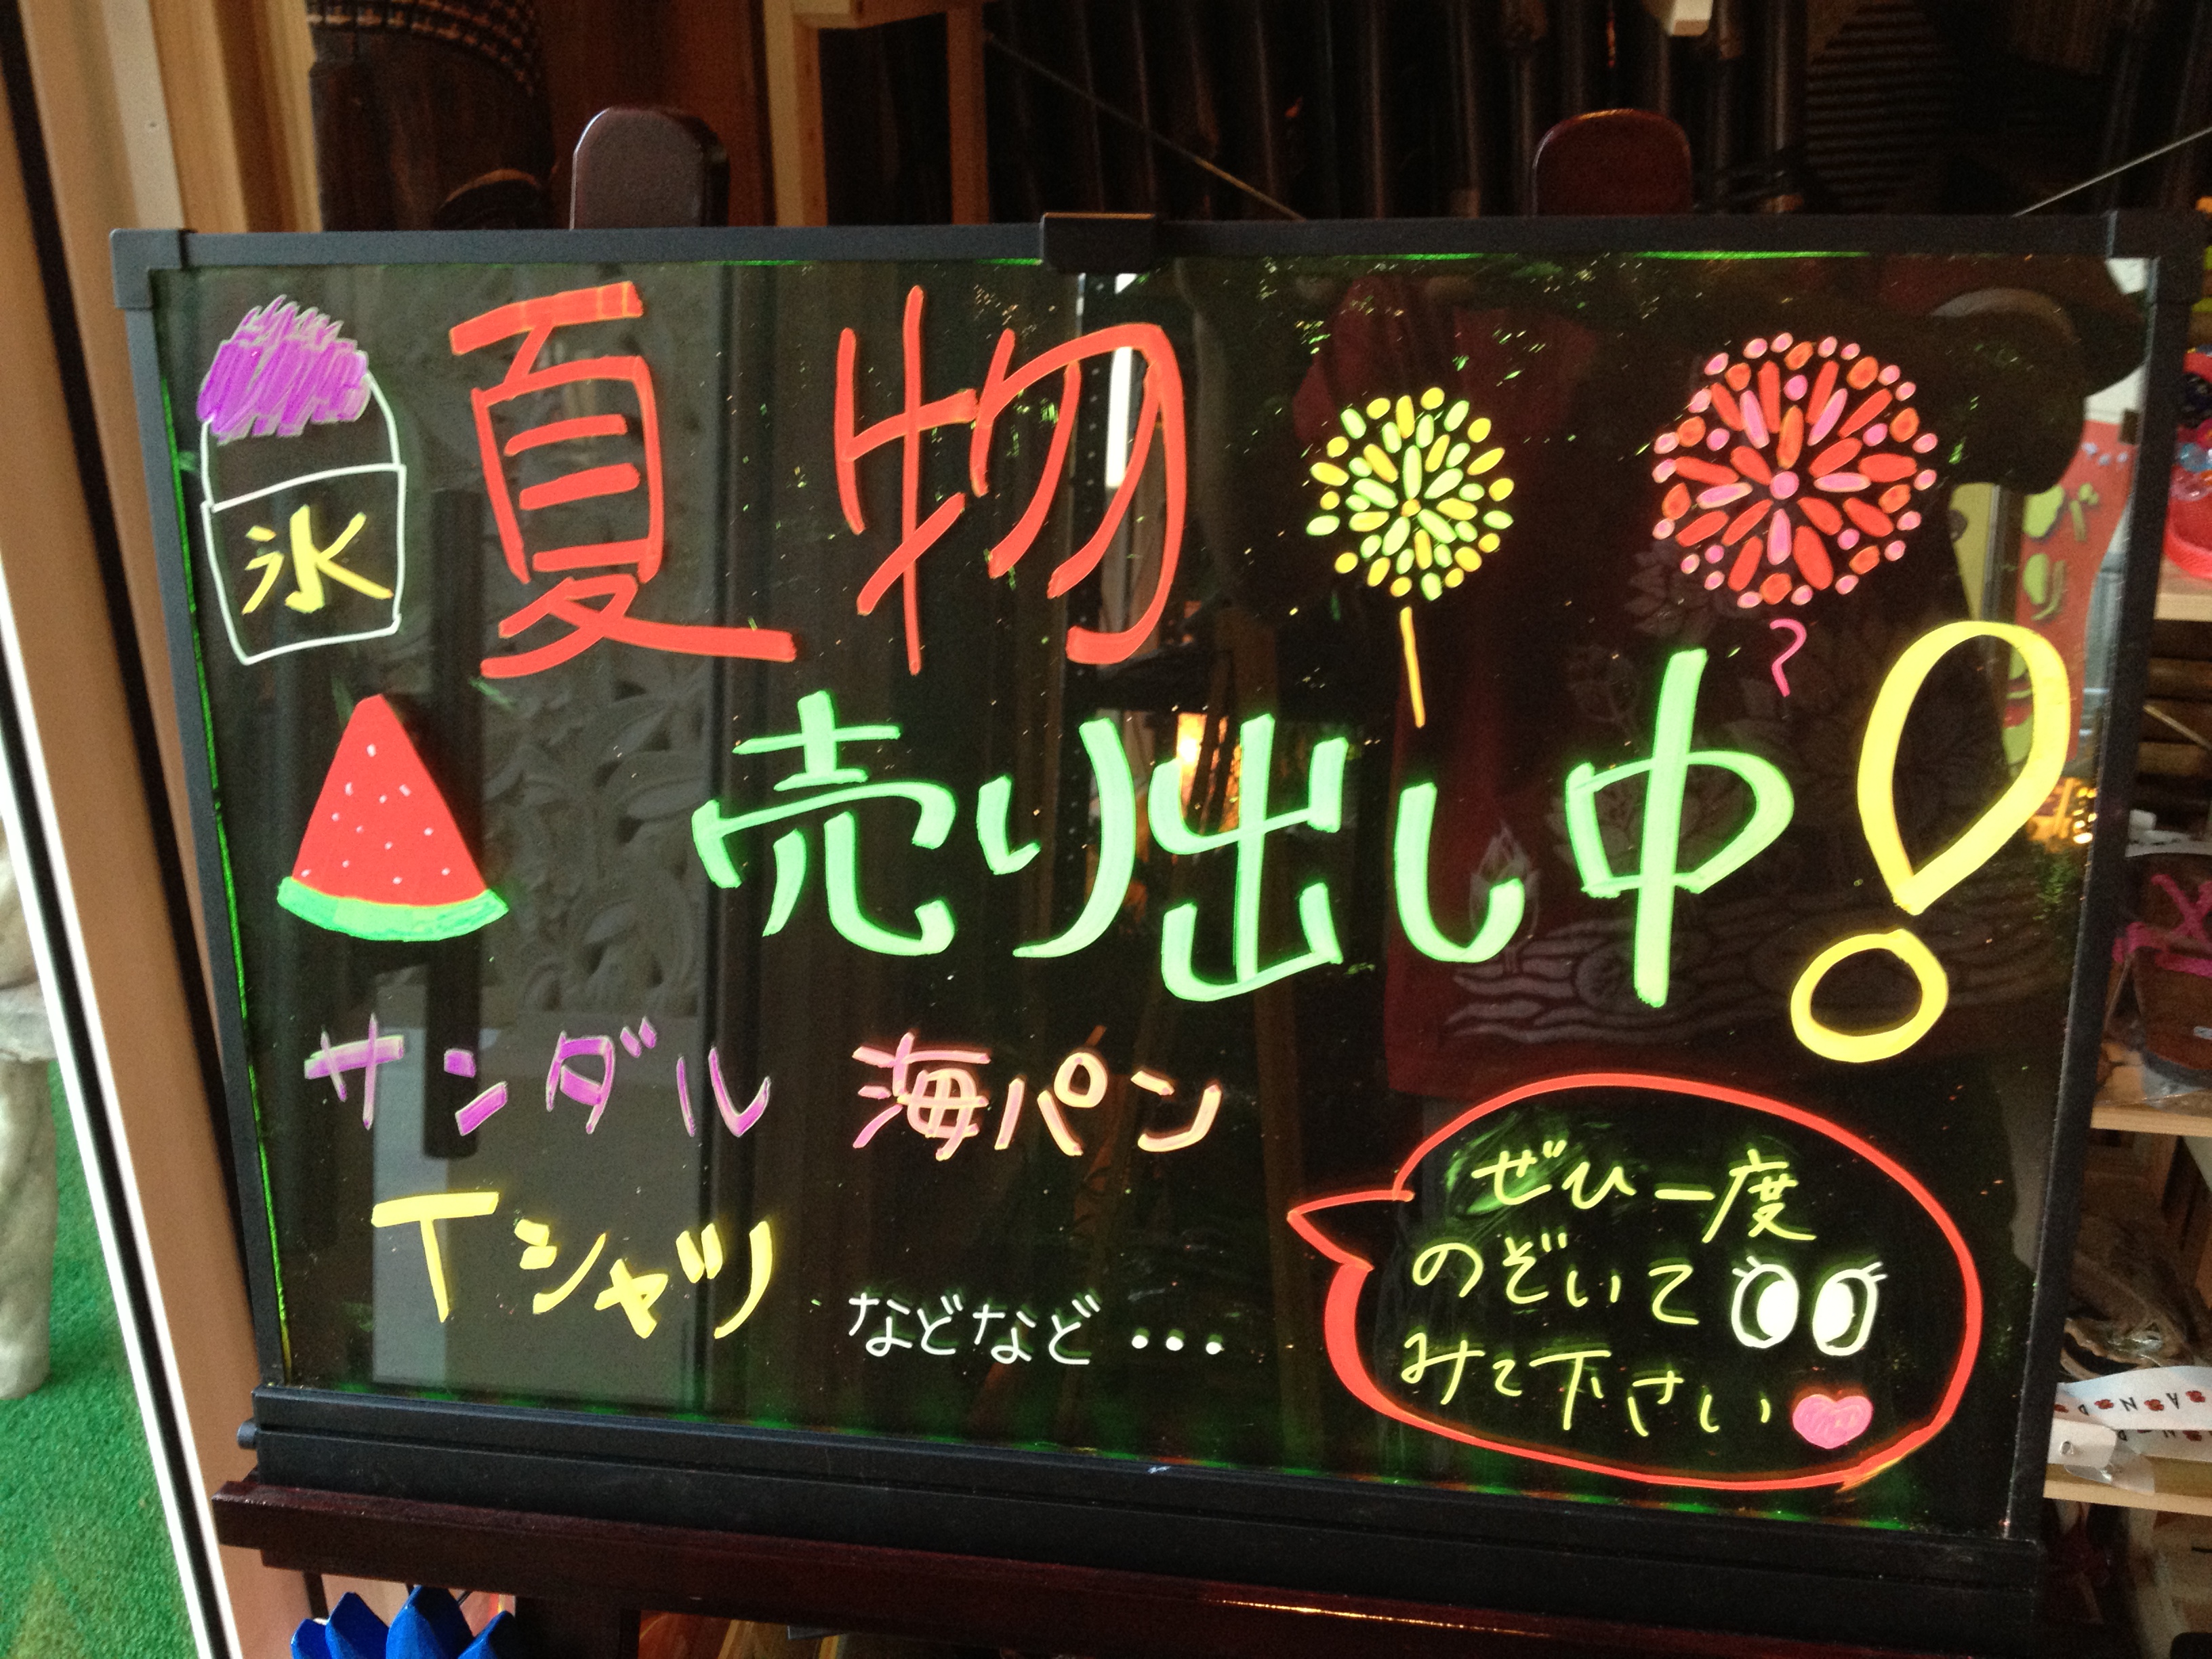 氷
夏物
売り出し中!
サンダル 海パン
Tシャツ
などなど・・・
ぜひ一度
のぞいて
みて下さい